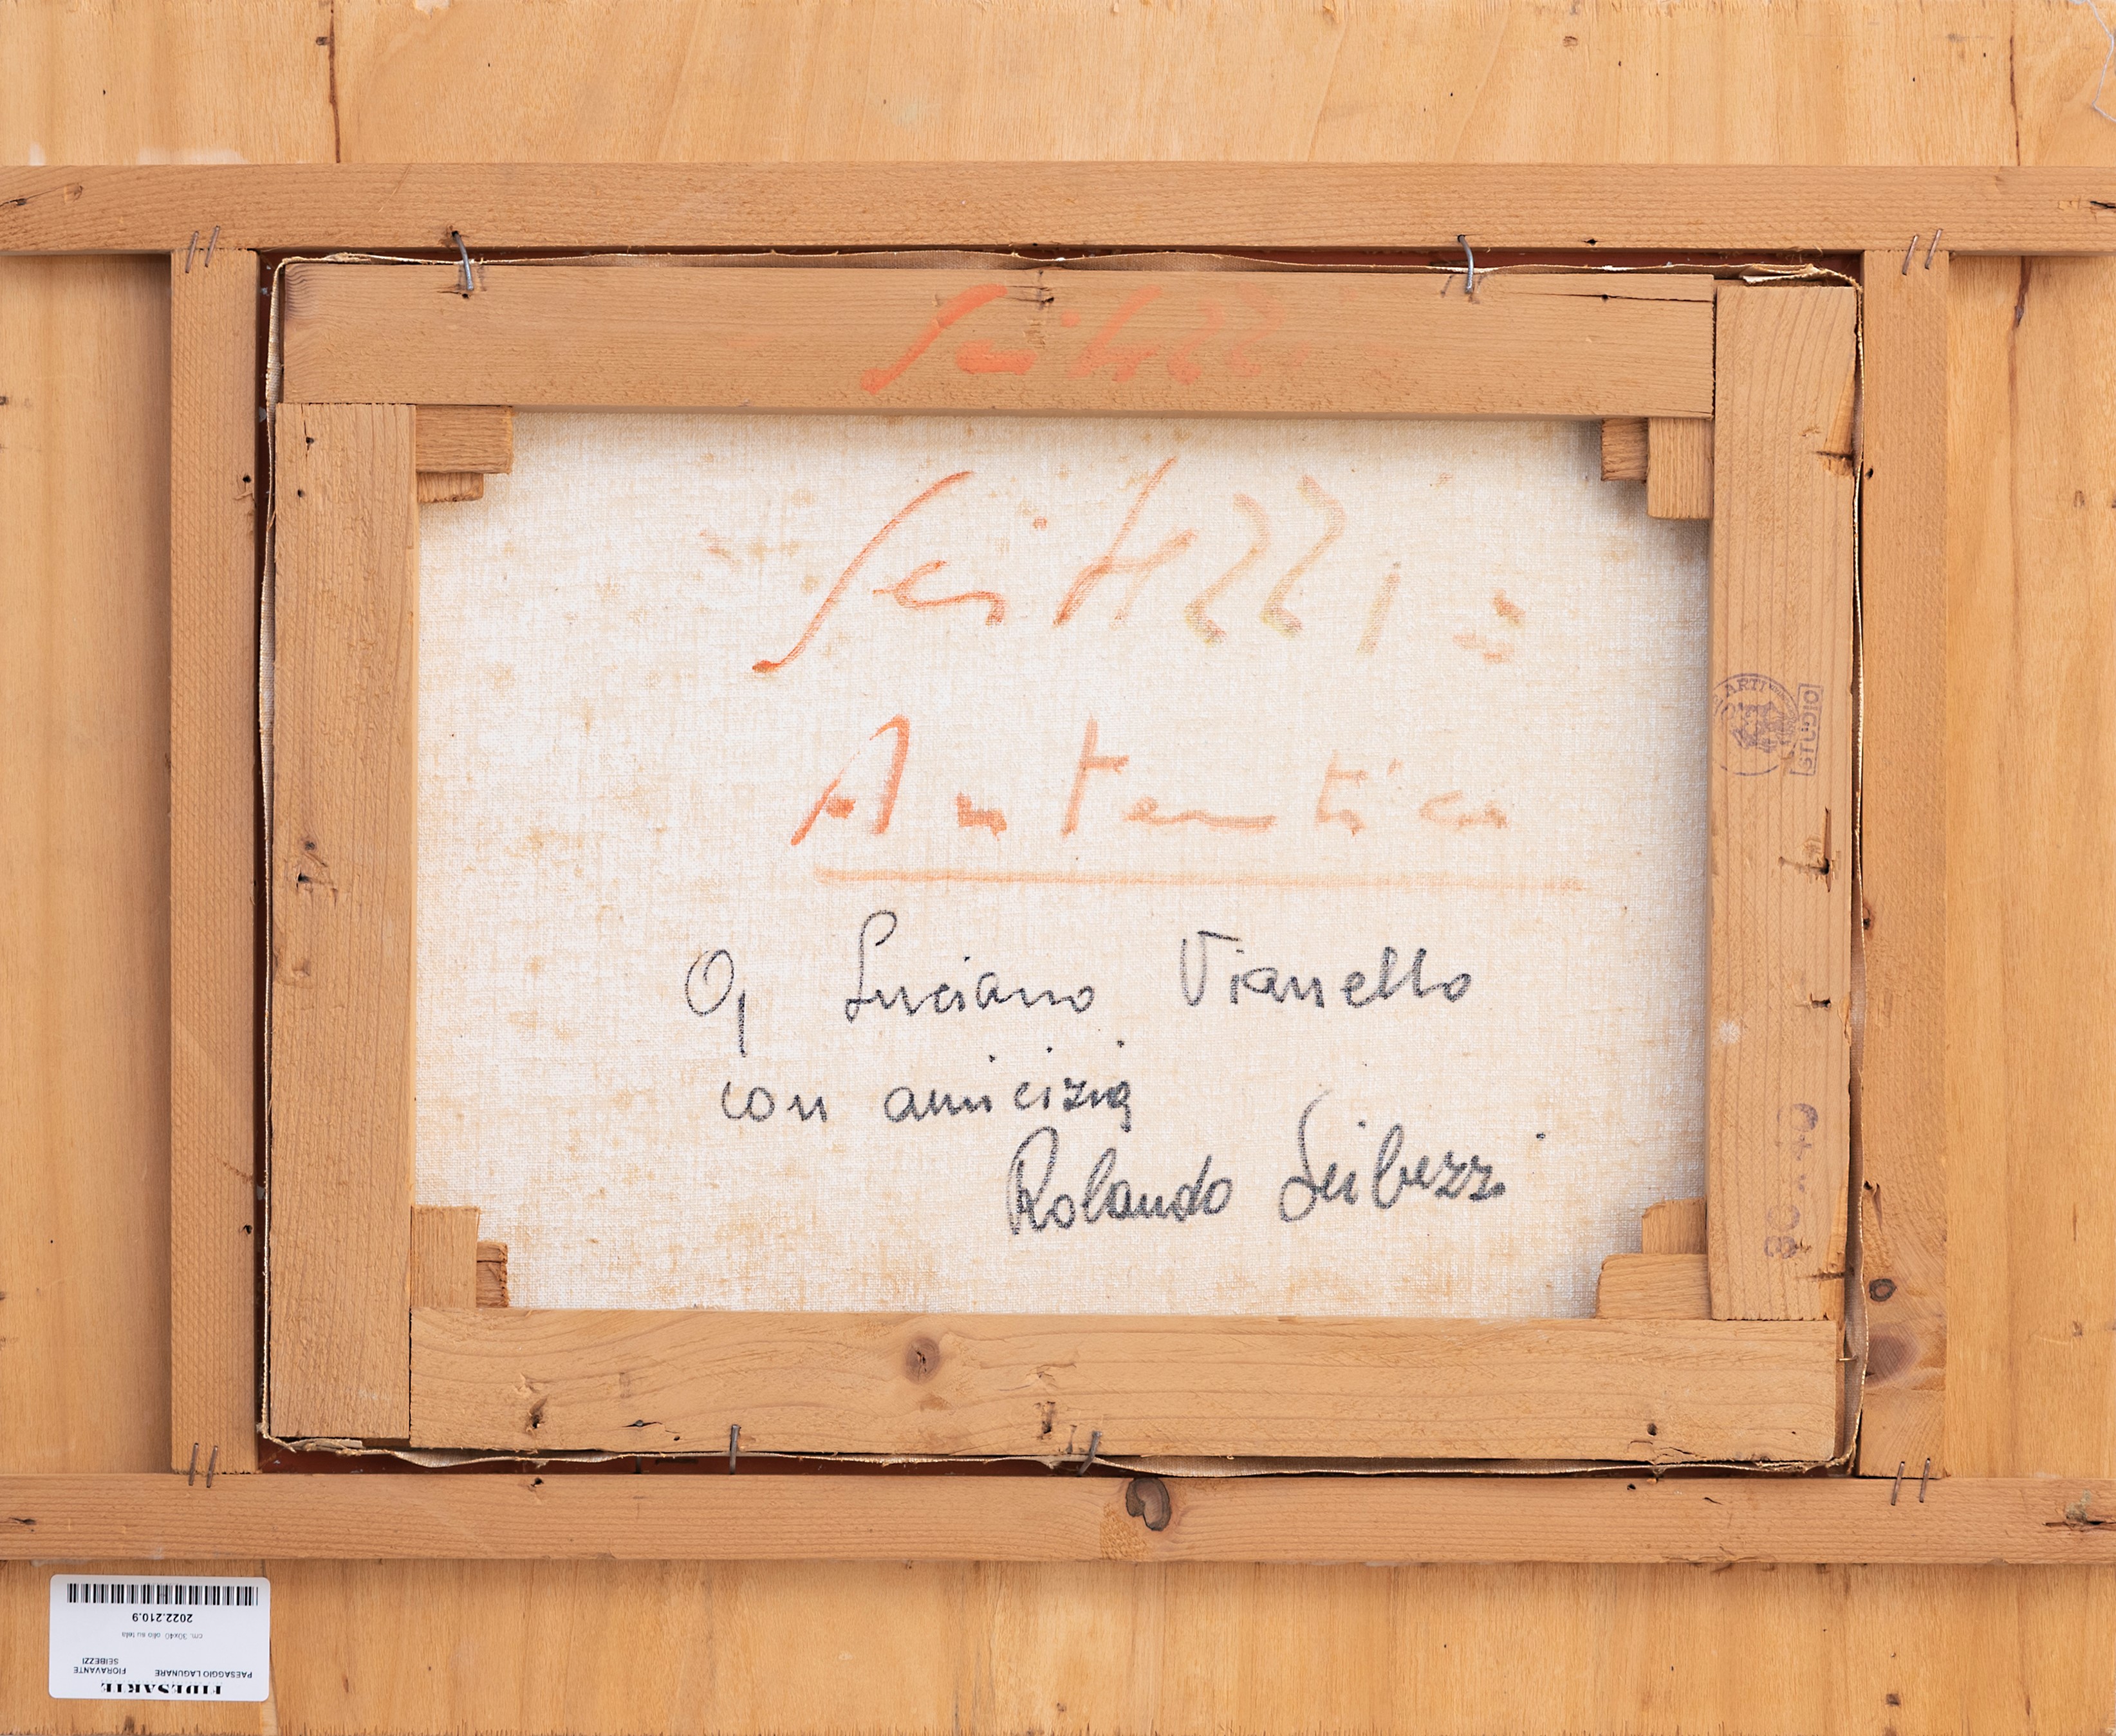 Seibezzi
Seibezzi =
Autentico
A Luciano Vianello
con amicizia
Rolando Seibezzi
ARTI
STUDIO
30 x 40
FIDESARTE
PAESAGGIO LAGUNARE FIORAVANTE
SEIBEZZI
cm. 30x40 olio su tela
2022.210.9